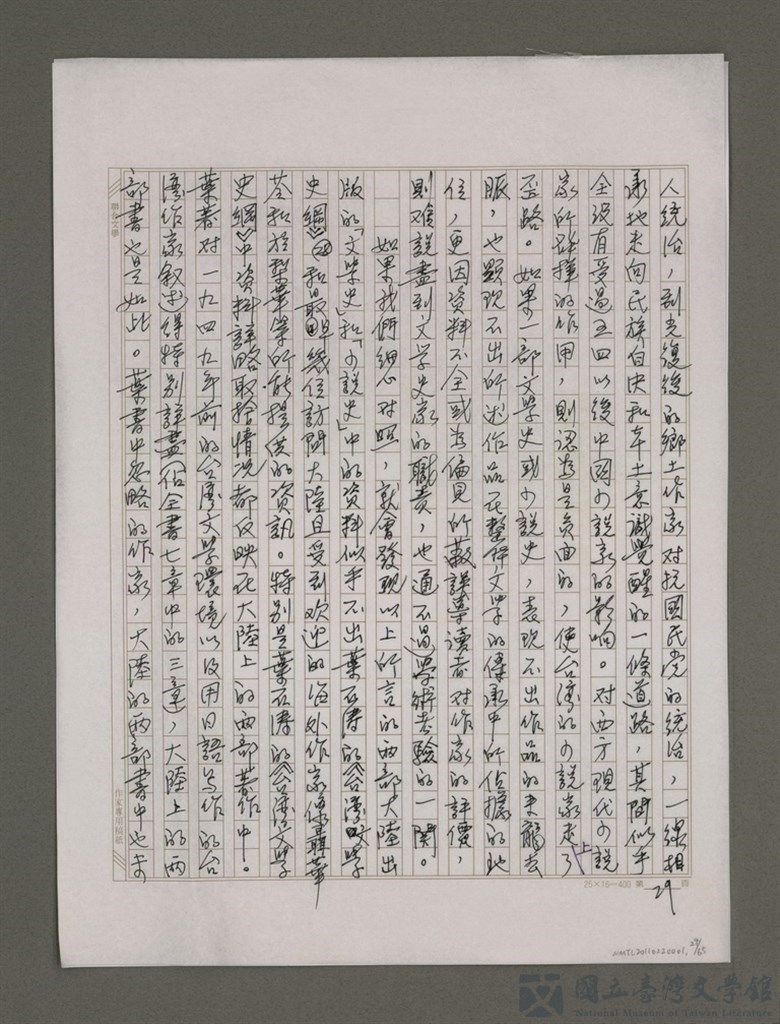 人統治，到光復後的鄉土作家對抗國民党的統治，一線相
承地走向民族自决和本土意識覺醒的一條道路，其間似乎
全沒有受過五四以後中國小說家的影响。對西方現代小說
家所發揮的作用，則認為是負面的，使台湾的小說家走上了
歪路。如果一部文學史或小說史，表現不出作品的来龍去
脈，也顯現不出所述作品在整体文學的傳承中所佔據的地
位，更因資料不全或為偏見所蔽誤導讀者对作家的評價，
則难說盡到文学史家的職責，也通不過學術考驗的一関。
如果我們細心对照，就會發現以上所言的两部大陸出
版的「文學史」和「小說史」中的資料似乎不出葉石濤的《台湾文學
史綱》和最早幾位訪問大陸且受到欢迎的海外作家像聶華
苓和於梨華等所能提供的資訊。特別是葉石濤的《台湾文學
史綱》中資料詳略取捨情况都反映在大陸上的两部著作中。
葉著对一九四九年前的台湾文學環境以及用日語寫作的台
湾作家敘述得特別詳盡(佔全書七章中的三章)，大陸上的两
部書也是如此。葉書中忽略的作家，大陸的两部書中也未
聯合文學
作家專用稿紙
25×16=400 第 29 頁
NMTL20110520001, 29/65
國立臺灣文學館
National Museum of Taiwan Literature